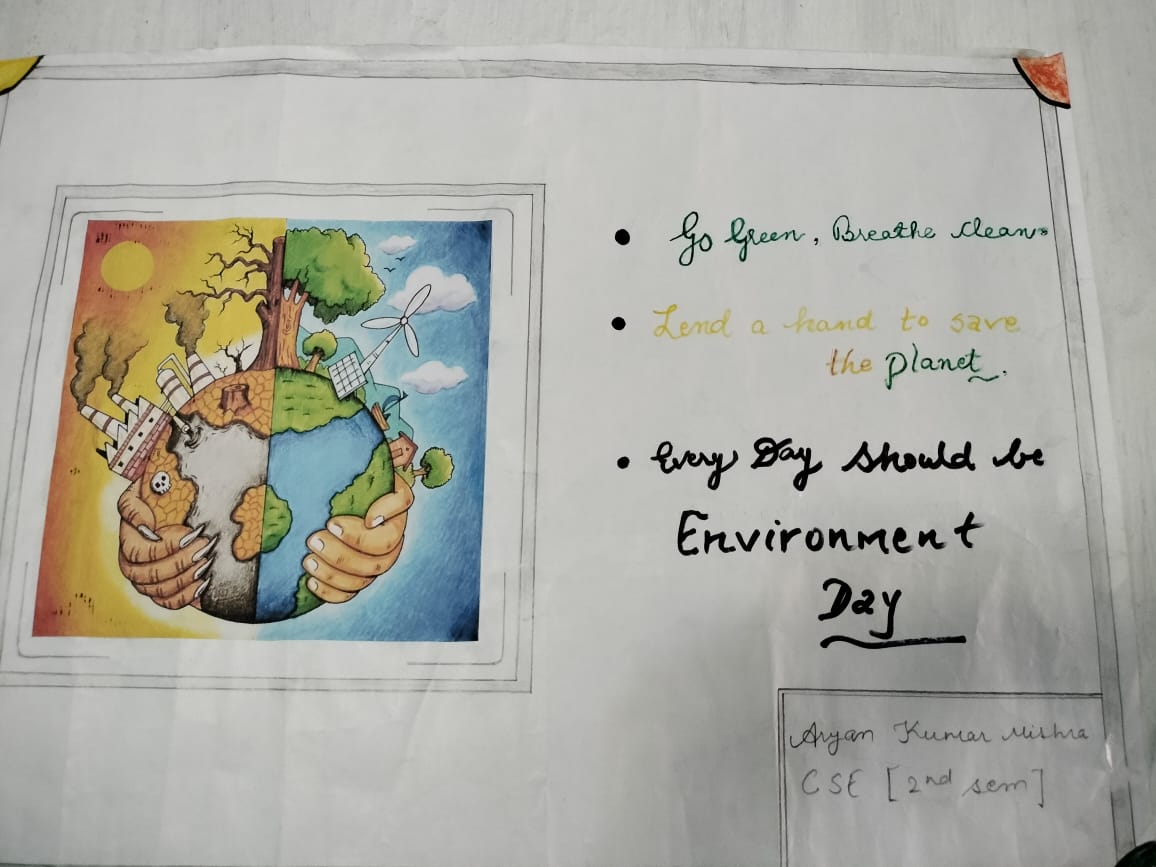 • Go Green, Breathe Clean.
• Lend a hand to save
the planet.
• Every Day should be
Environment
Day
Aryan Kumar Mishra
CSE [2nd sem]